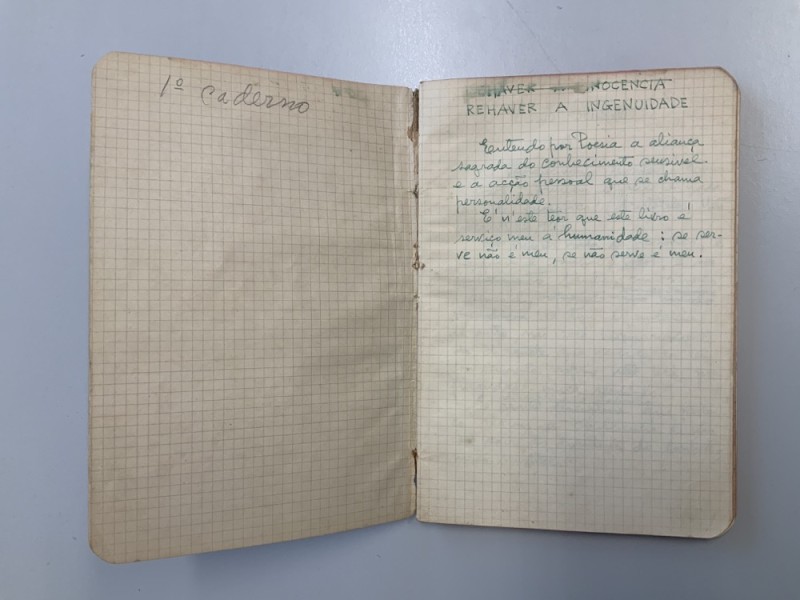 1º caderno
REHAVER A INOCENCIA
REHAVER A INGENUIDADE
Entendo por Poesia a aliança
sagrada do conhecimento sensivel
e a acção pessoal que se chama
personalidade.
E' n'este teôr que este livro é
serviço meu á humanidade: se ser-
ve não é meu, se não serve é meu.